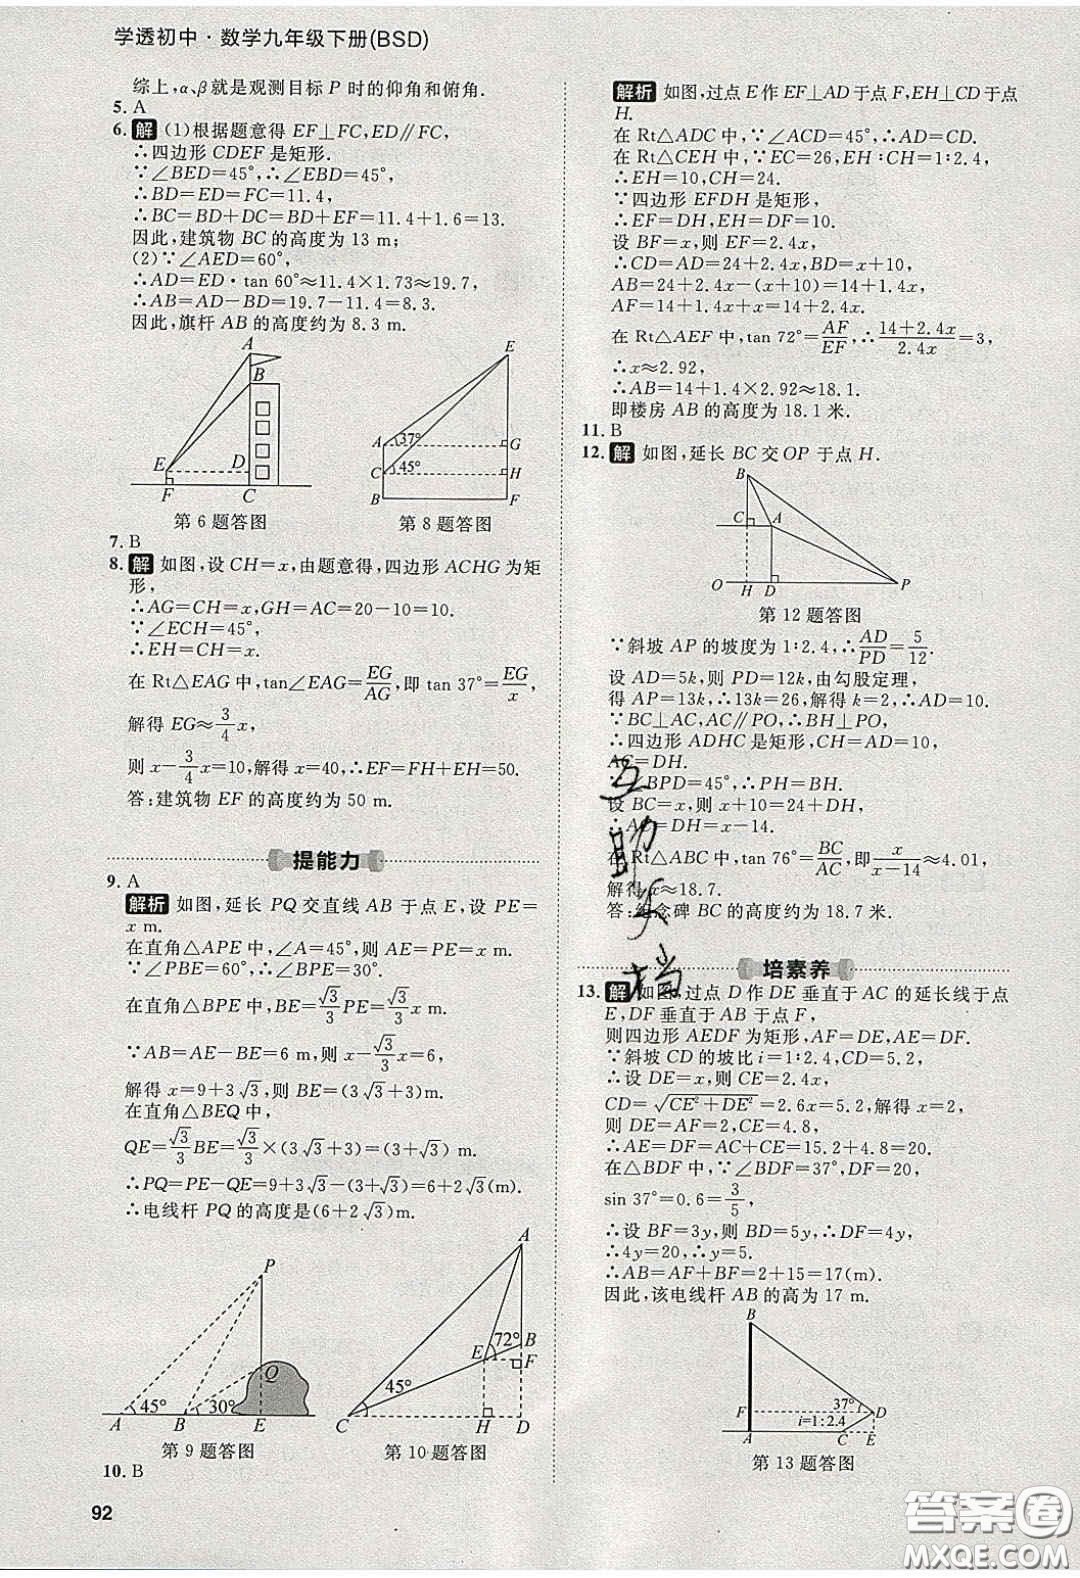 学透初中·数学九年级下册(BSD)
综上,α、β就是观测目标 P 时的仰角和俯角.
5. A
6. 解 (1)根据题意得 EF⊥FC,ED∥FC,
∴四边形 CDEF 是矩形.
∵∠BED=45°,∴∠EBD=45°,
∴BD=ED=FC=11.4,
∴BC=BD+DC=BD+EF=11.4+1.6=13.
因此,建筑物 BC 的高度为 13 m;
(2)∵∠AED=60°,
∴AD=ED·tan 60°≈11.4×1.73≈19.7,
∴AB=AD-BD=19.7-11.4=8.3.
因此,旗杆 AB 的高度约为 8.3 m.
A
B
E
D
F
C
第 6 题答图
E
A
37°
G
C
45°
H
B
F
第 8 题答图
7. B
8. 解 如图,设 CH=x,由题意得,四边形 ACHG 为矩
形,
∴AG=CH=x,GH=AC=20-10=10.
∵∠ECH=45°,
∴EH=CH=x.
在 Rt△EAG 中,tan∠EAG=EG/AG,即 tan 37°=EG/x,
解得 EG≈3/4x,
则 x-3/4x=10,解得 x=40,∴EF=FH+EH=50.
答:建筑物 EF 的高度约为 50 m.
提能力
9. A
解析 如图,延长 PQ 交直线 AB 于点 E,设 PE=
x m.
在直角△APE 中,∠A=45°,则 AE=PE=x m.
∵∠PBE=60°,∴∠BPE=30°.
在直角△BPE 中,BE=√3/3PE=√3/3x m,
∵AB=AE-BE=6 m,则 x-√3/3x=6,
解得 x=9+3√3,则 BE=(3√3+3)m.
在直角△BEQ 中,
QE=√3/3BE=√3/3×(3√3+3)=(3+√3)m.
∴PQ=PE-QE=9+3√3-(3+√3)=6+2√3(m).
∴电线杆 PQ 的高度是(6+2√3)m.
P
Q
45°
30°
A
B
E
第 9 题答图
A
72°
B
E
F
45°
C
H
D
第 10 题答图
10. B
92
解析 如图,过点 E 作 EF⊥AD 于点 F,EH⊥CD 于点
H.
在 Rt△ADC 中,∵∠ACD=45°,∴AD=CD.
在 Rt△CEH 中,∵EC=26,EH∶CH=1∶2.4,
∴EH=10,CH=24.
∵四边形 EFDH 是矩形,
∴EF=DH,EH=DF=10.
设 BF=x,则 EF=2.4x,
∴CD=AD=24+2.4x,BD=x+10,
AB=24+2.4x-(x+10)=14+1.4x,
AF=14+1.4x+x=14+2.4x,
在 Rt△AEF 中,tan 72°=AF/EF,∴14+2.4x/2.4x=3,
∴x≈2.92,
∴AB=14+1.4×2.92≈18.1.
即楼房 AB 的高度为 18.1 米.
11. B
12. 解 如图,延长 BC 交 OP 于点 H.
B
C
A
O
H
D
P
第 12 题答图
∵斜坡 AP 的坡度为 1∶2.4,∴AD/PD=5/12.
设 AD=5k,则 PD=12k,由勾股定理,
得 AP=13k,∴13k=26,解得 k=2,∴AD=10.
∵BC⊥AC,AC∥PO,∴BH⊥PO,
∴四边形 ADHC 是矩形,CH=AD=10,
AC=DH.
∵∠BPD=45°,∴PH=BH.
设 BC=x,则 x+10=24+DH,
∴AC=DH=x-14.
在 Rt△ABC 中,tan 76°=BC/AC,即x/x-14≈4.01,
解得 x≈18.7.
答:纪念碑 BC 的高度约为 18.7 米.
培素养
13. 解 如图,过点 D 作 DE 垂直于 AC 的延长线于点
E,DF 垂直于 AB 于点 F,
则四边形 AEDF 为矩形,AF=DE,AE=DF.
∵斜坡 CD 的坡比 i=1∶2.4,CD=5.2,
∴设 DE=x,CE=2.4x,
CD=√CE²+DE²=2.6x=5.2,解得 x=2,
则 DE=AF=2,CE=4.8,
∴AE=DF=AC+CE=15.2+4.8=20.
在△BDF 中,∵∠BDF=37°,DF=20,
sin 37°=0.6=3/5,
∴设 BF=3y,则 BD=5y,∴DF=4y,
∴4y=20,∴y=5.
∴AB=AF+BF=2+15=17(m).
因此,该电线杆 AB 的高为 17 m.
B
37°
F
D
i=1∶2.4
A
C
E
第 13 题答图
互助文档
答案圈
MXQE.COM